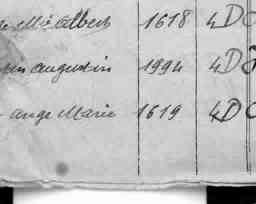 Albert 1618 4D
Augustin 1994 4D
ange Marie 1619 4D